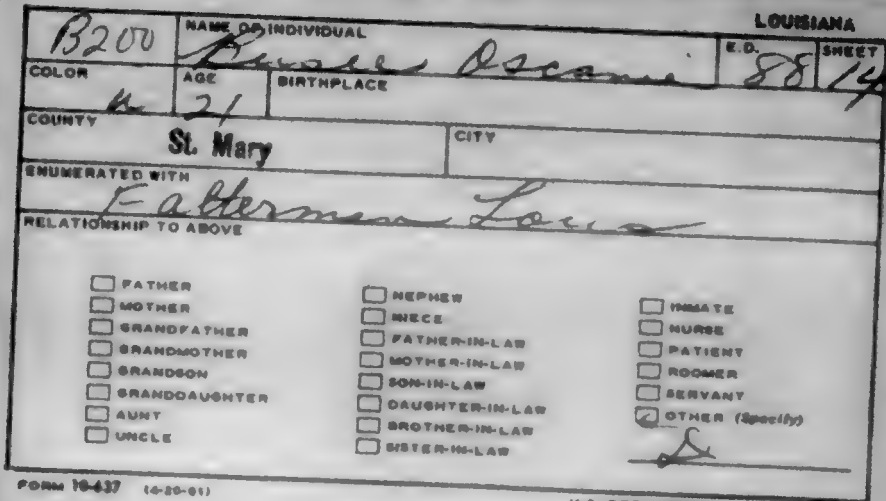 LOUISIANA
B200 NAME OF INDIVIDUAL E.D. 88 SHEET 14
COLOR AGE 21 BIRTHPLACE
COUNTY St. Mary CITY
ENUMERATED WITH
Falterman Louis
RELATIONSHIP TO ABOVE
FATHER
MOTHER
GRANDFATHER
GRANDMOTHER
GRANDSON
GRANDDAUGHTER
AUNT
UNCLE
NEPHEW
NIECE
FATHER-IN-LAW
MOTHER-IN-LAW
SON-IN-LAW
DAUGHTER-IN-LAW
BROTHER-IN-LAW
SISTER-IN-LAW
INMATE
NURSE
PATIENT
ROOMER
SERVANT
OTHER (Specify)
S
FORM 19-637 (4-20-61)